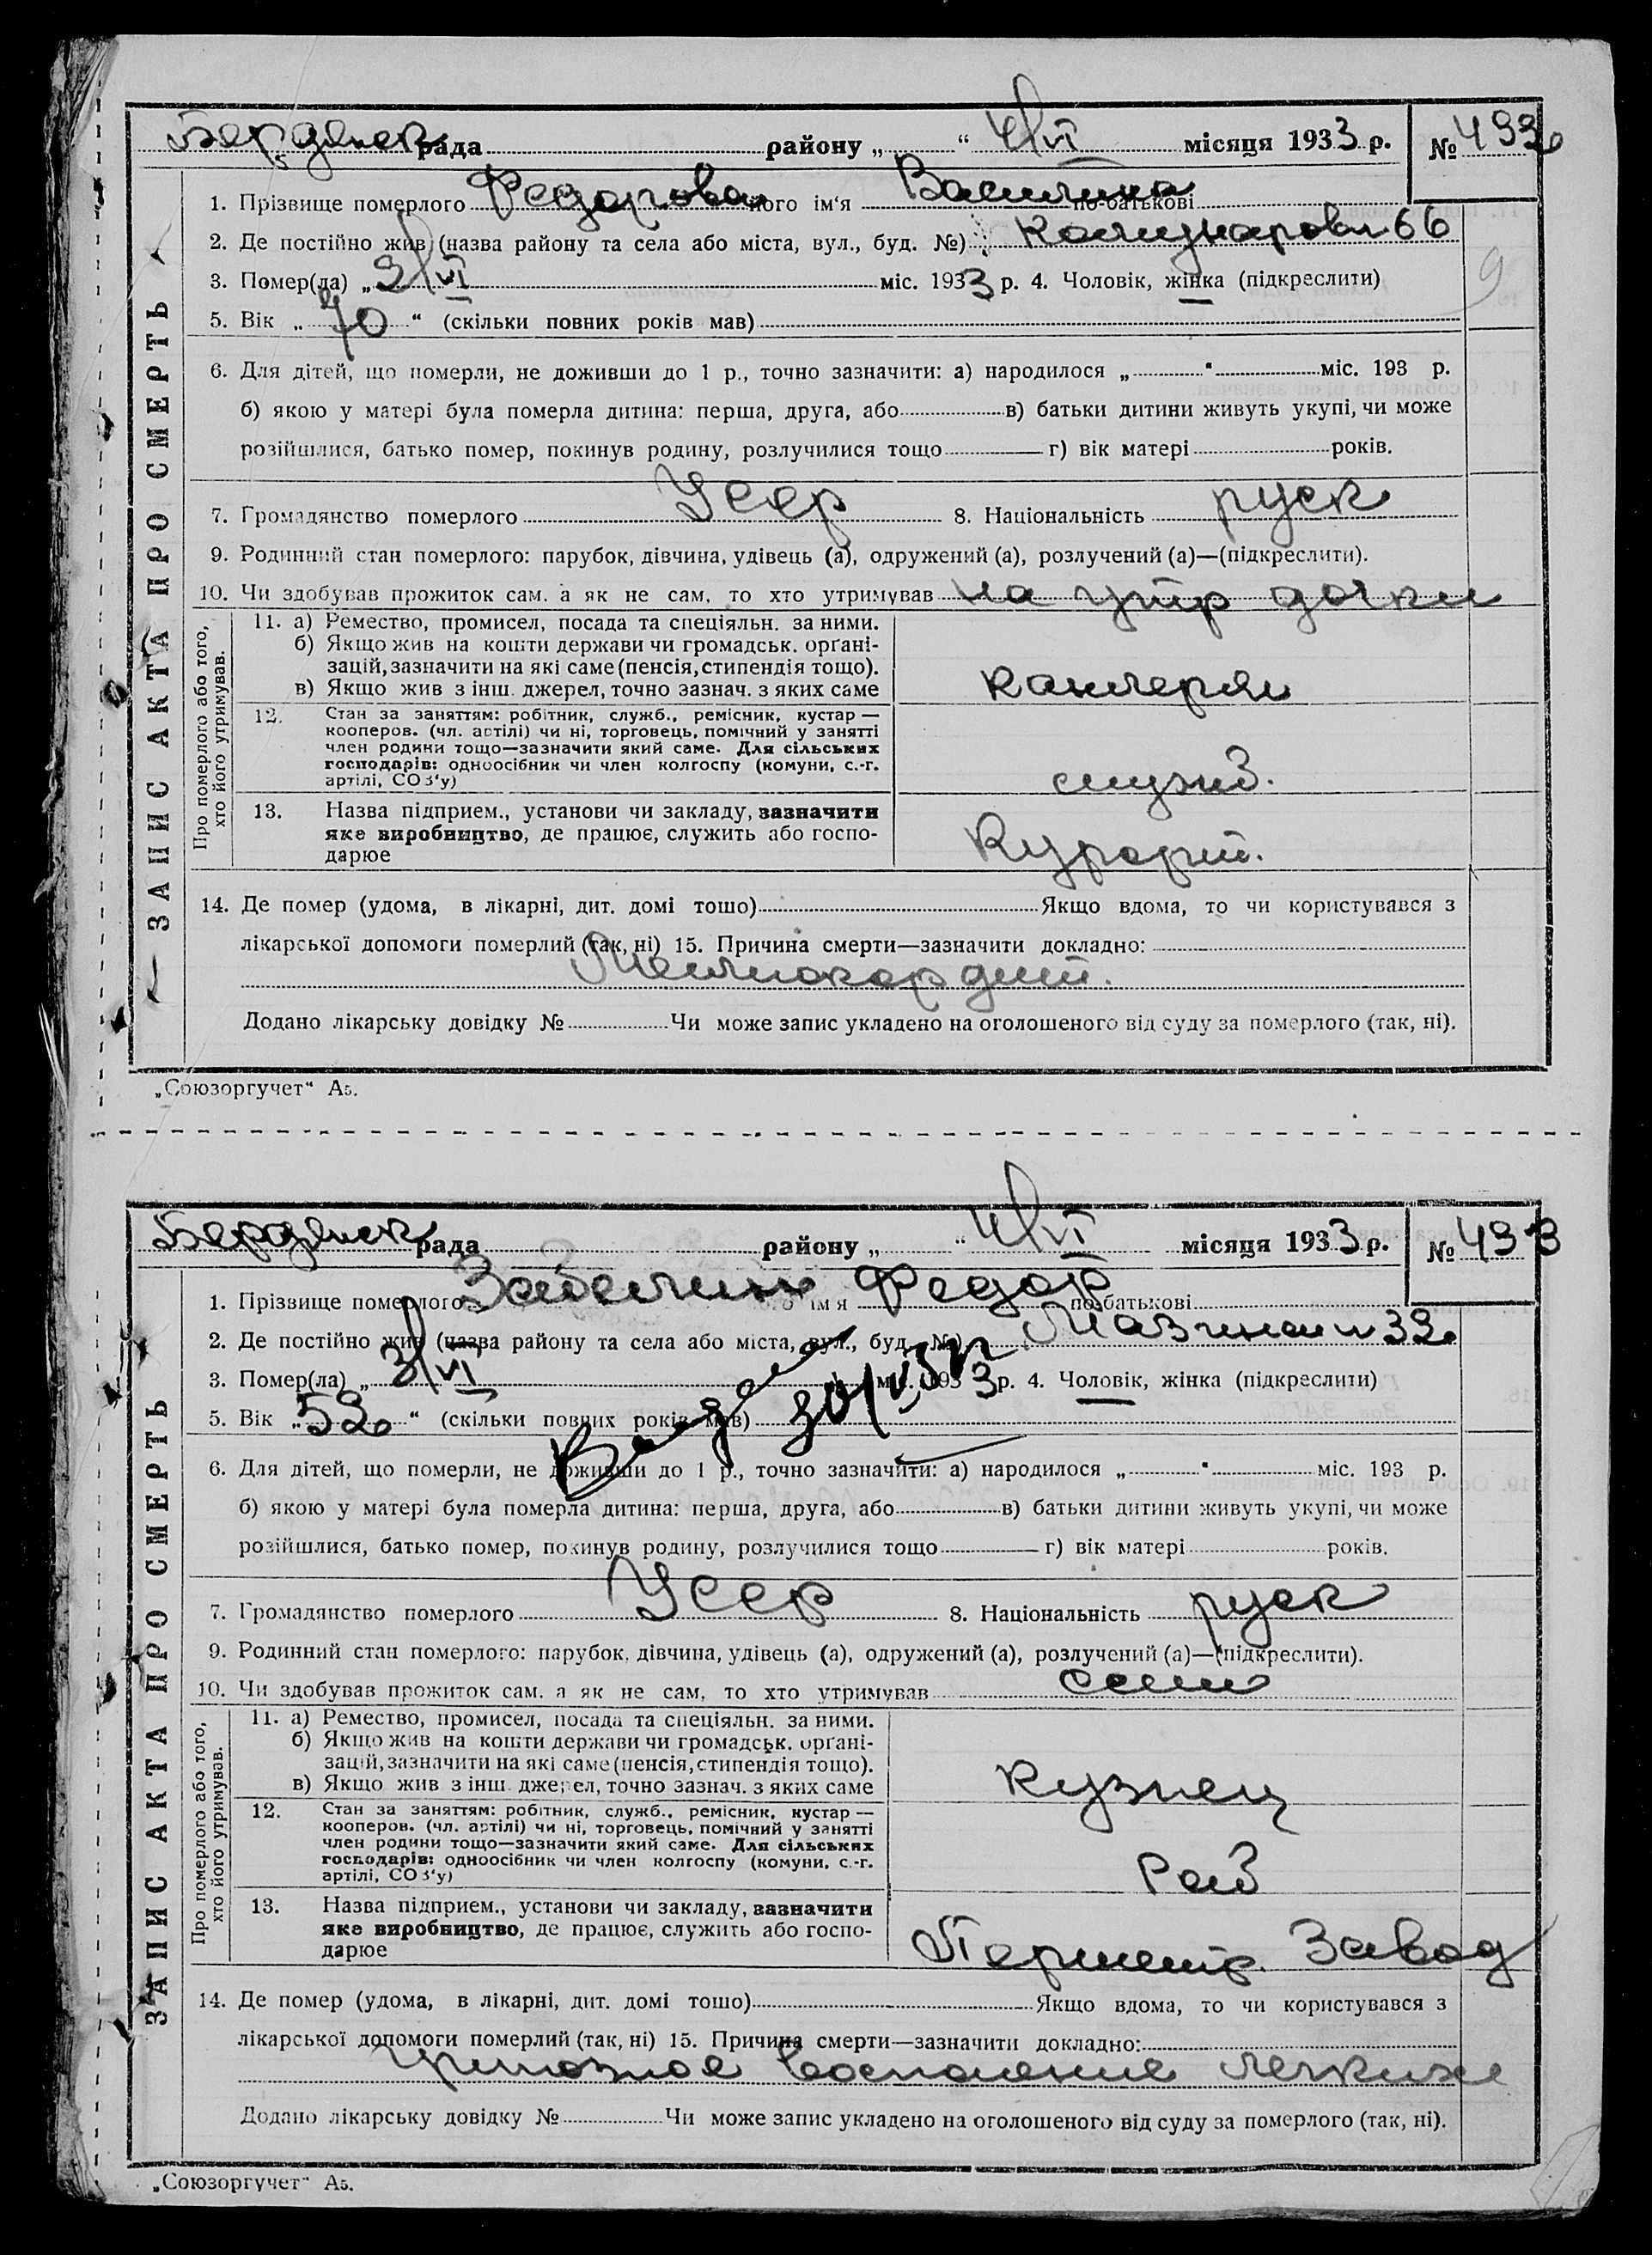 Бердянск рада району „ “ 4/VI місяця 1933 р. № 492
1. Прізвище померлого Федорова його ім‘я Василина по-батькові
2. Де постійно жив (назва району та села або міста, вул., буд. №) Комунаров 66
3. Помер(ла) „ 2/VI міс. 1933 р. 4. Чоловік, жінка (підкреслити)
5. Вік „ 70 “ (скільки повних років мав)
6. Для дітей, що померли, не доживши до 1 р., точно зазначити: а) народилося „ “ міс. 193 р.
б) якою у матері була померла дитина: перша, друга, або в) батьки дитини живуть укупі, чи може
розійшлися, батько помер, покинув родину, розлучилися тощо г) вік матері років.
7. Громадянство померлого Усср 8. Національність руск
9. Родинний стан померлого: парубок, дівчина, удівець (а), одружений (а), розлучений (а)—(підкреслити).
10. Чи здобував прожиток сам, а як не сам, то хто утримував на утр дочки
ЗАПИС АКТА ПРО СМЕРТЬ
Про померлого або того,
хто його утримував.
11. а) Ремество, промисел, посада та спеціяльн. за ними.
б) Якщо жив на кошти держави чи громадськ. орґані-
зацій, зазначити на які саме (пенсія, стипендія тощо).
в) Якщо жив з інш. джерел, точно зазнач. з яких саме
12. Стан за заняттям: робітник, служб., ремісник, кустар —
кооперов. (чл. артілі) чи ні, торговець, помічний у занятті
член родини тощо—зазначити який саме. Для сільських
господарів: одноосібник чи член колгоспу (комуни, с.-г.
артілі, СОЗ‘у)
служб.
13. Назва підприєм., установи чи закладу, зазначити
яке виробництво, де працює, служить або госпо-
дарює
Курорт.
14. Де помер (удома, в лікарні, дит. домі тощо) Якщо вдома, то чи користувався з
лікарської допомоги померлий (так, ні) 15. Причина смерти—зазначити докладно:
Додано лікарську довідку № Чи може запис укладено на оголошеного від суду за померлого (так, ні).
„Союзоргучет“ А5.
Бердянск рада району „ “ 4/VI місяця 1933 р. № 493
1. Прізвище померлого Забелин ім‘я Федор по-батькові
2. Де постійно жив (назва району та села або міста, вул., буд. №) 32
3. Помер(ла) „ 3/VI міс. 1933 р. 4. Чоловік, жінка (підкреслити)
5. Вік „ 52 “ (скільки повних років мав)
6. Для дітей, що померли, не доживши до 1 р., точно зазначити: а) народилося „ “ міс. 193 р.
б) якою у матері була померла дитина: перша, друга, або в) батьки дитини живуть укупі, чи може
розійшлися, батько помер, покинув родину, розлучилися тощо г) вік матері років.
7. Громадянство померлого Усср 8. Національність руск
9. Родинний стан померлого: парубок, дівчина, удівець (а), одружений (а), розлучений (а)—(підкреслити).
10. Чи здобував прожиток сам, а як не сам, то хто утримував сам
ЗАПИС АКТА ПРО СМЕРТЬ
Про померлого або того,
хто його утримував.
11. а) Ремество, промисел, посада та спеціяльн. за ними.
б) Якщо жив на кошти держави чи громадськ. орґані-
зацій, зазначити на які саме (пенсія, стипендія тощо).
в) Якщо жив з інш. джерел, точно зазнач. з яких саме
Кузнец
12. Стан за заняттям: робітник, служб., ремісник, кустар —
кооперов. (чл. артілі) чи ні, торговець, помічний у занятті
член родини тощо—зазначити який саме. Для сільських
господарів: одноосібник чи член колгоспу (комуни, с.-г.
артілі, СОЗ‘у)
Раб
13. Назва підприєм., установи чи закладу, зазначити
яке виробництво, де працює, служить або госпо-
дарює
Першетр. Завод
14. Де помер (удома, в лікарні, дит. домі тощо) Якщо вдома, то чи користувався з
лікарської допомоги померлий (так, ні) 15. Причина смерти—зазначити докладно:
крупозное воспаление легких
Додано лікарську довідку № Чи може запис укладено на оголошеного від суду за померлого (так, ні).
„Союзоргучет“ А5.